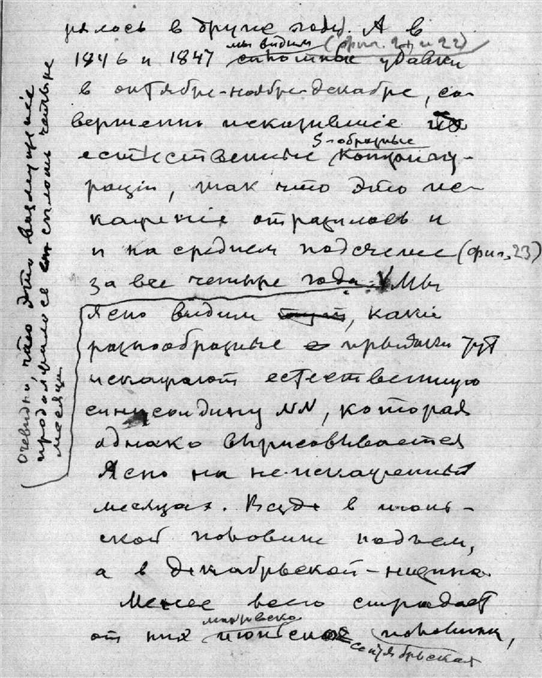 рялось в другие годы. А в
мы видим (фиг. 21 и 22)
1846 и 1847 убавки
в октябре-ноябре-декабре, со-
вершенно исказившие
S-образные
естественные конфигу-
рации, так что это ис-
кажение отразилось и
и на среднем подсчете (фиг. 23)
за все четыре года. V Мы
Ясно видим, какие
разнообразные придатки тут
искажают естественную
синусоидину NN, которая
однако вырисовывается
Ясно на неискаженных
месяцах. Везде в июнь-
ской половине подъем,
а в декабрьской - низина.
Менее всего страдает
мартовско
от них половина,
сентябрьская
Очевидно, что это возмущение
продолжалось сплошь четыре
месяца.